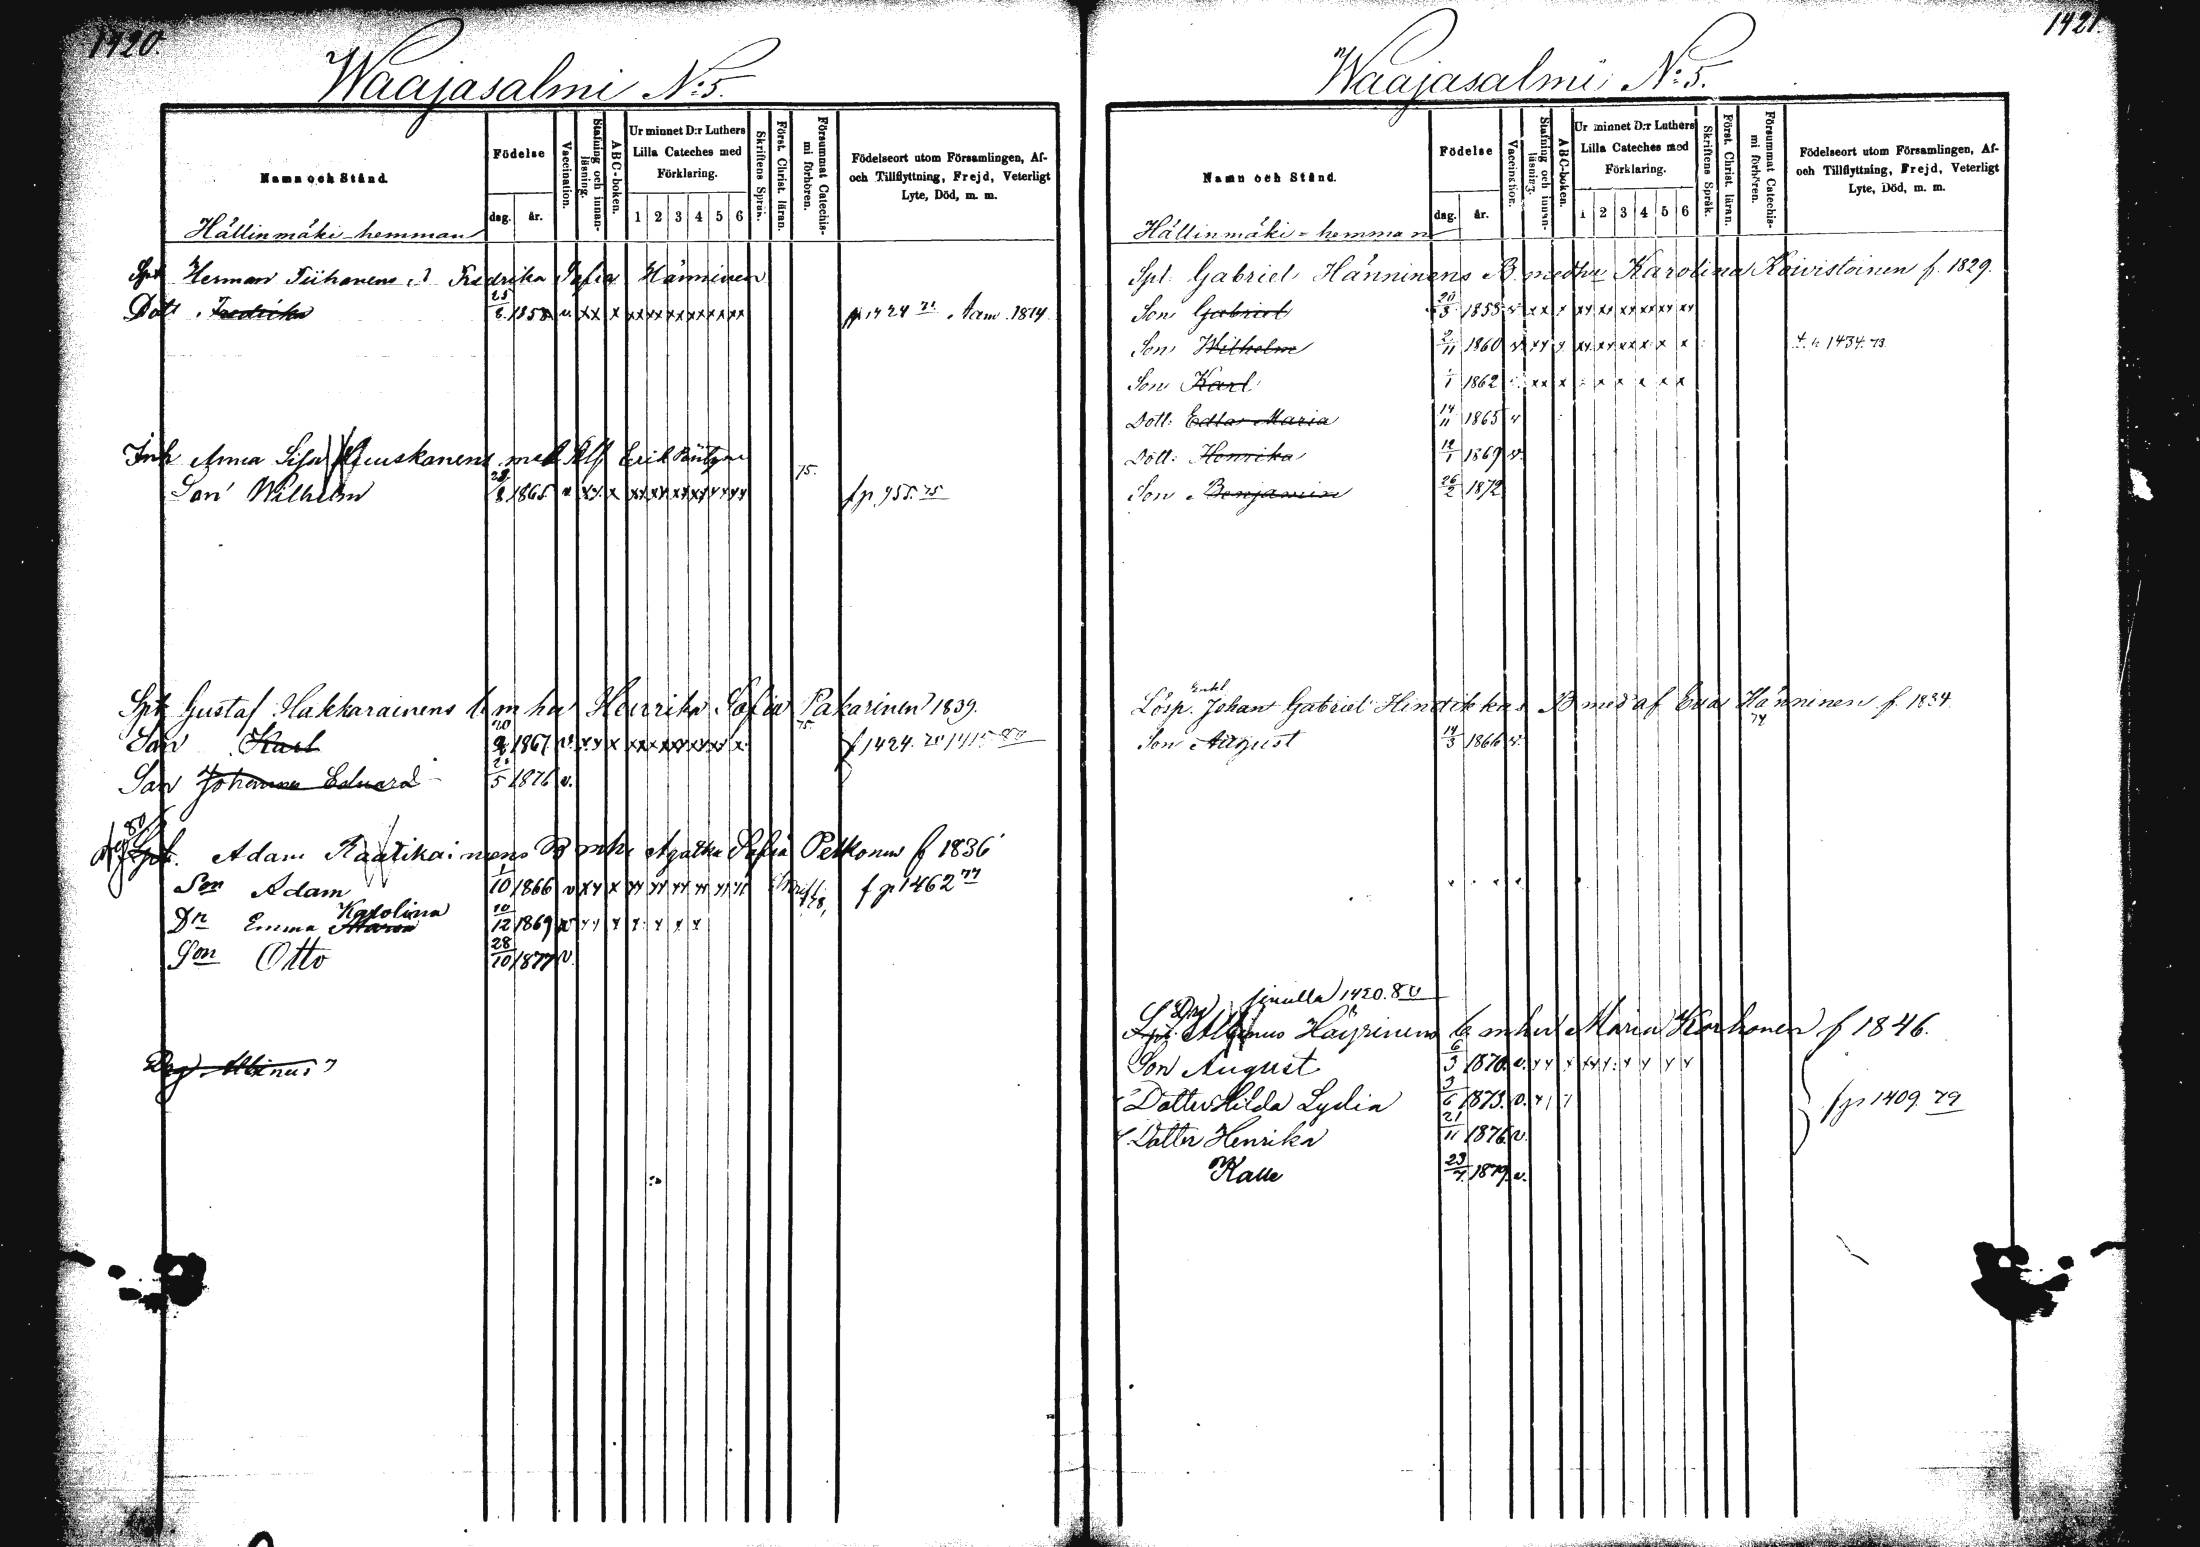 1420.
Waajasalmi No 5.
Namn och Stånd.
Födelse
dag.
år.
Vaccination.
Stafning och innan-
läsning.
ABC-boken.
Ur minnet D:r Luthers
Lilla Cateches med
Förklaring.
1 2 3 4 5 6
Skriftens Språk.
Först. Christ. läran.
Försummat Catechis-
mi förhören.
Födelseort utom Församlingen, Af-
och Tillflyttning, Frejd, Veterligt
Lyte, Död, m. m.
Hällinmäki-hemman
Spt Herman Tiihonens Fredrika Sofia Hänninen
Dott. Fredrika 25/8 1858 v xx x xx xx xx xx xx xx 1424 71 1874
Inh Anna Lisa Erik
15.
Son Wilhelm 1865 v xx x xx xx xx xx xx xx fp. 955. 75
Spt Gustaf Hakkarainens b m hu Henrika Sofia Pakarinen 1839.
75.
Son Karl 1867 v. xx x f 1424. 1415 80
Son Johannes Eduard 5 1876 v.
80
Spt. Adam Raatikainens B mhu Agatha Sofia Petkonen f 1836
Son Adam 1/10 1866 v xx x xx xx xx xx xx xx f p 1462 77
Karolina
Dr Emma Maria 10/12 1869 v x x x x x x x
Son Otto 28/10 1877 v.
Albinus
1421.
Waajasalmi No 5.
Namn och Stånd.
Födelse
dag.
år.
Vaccination.
Stafning och innan-
läsning.
ABC-boken.
Ur minnet D:r Luthers
Lilla Cateches med
Förklaring.
1 2 3 4 5 6
Skriftens Språk.
Först. Christ. läran.
Försummat Catechis-
mi förhören.
Födelseort utom Församlingen, Af-
och Tillflyttning, Frejd, Veterligt
Lyte, Död, m. m.
Hällinmäki-hemman
Spt. Gabriel Hänninens B medhu Karolina Koivistoinen f. 1829.
Son Gabriel 20/3 1855 v x x x xx xx xx xx xx xx
Son Wilhelm 2/11 1860 v x x x xx xx x x x x 1434. 73
Son Karl 1/1 1862 x x x x x x x x
Dott: Edla Maria 14/11 1865 v
Dott: Henrika 12/1 1869 v.
Son Benjamin 26/2 1872
Enkl
Lösp. Johan Gabriel Hindrikkas B med af Eva Hänninen f. 1834
74
Son August 14/3 1866 v.
sinulla 1420. 80
Albinus Häyrinens b mhu Maria Korhonen f 1846.
Son August 6/3 1870. v. x x x xx x x x x x
Dotter Hilda Lydia 3/6 1873. v. x
fp 1409 79
Dotter Henrika 21/11 1876 v.
Kalle 23/7 1879. v.